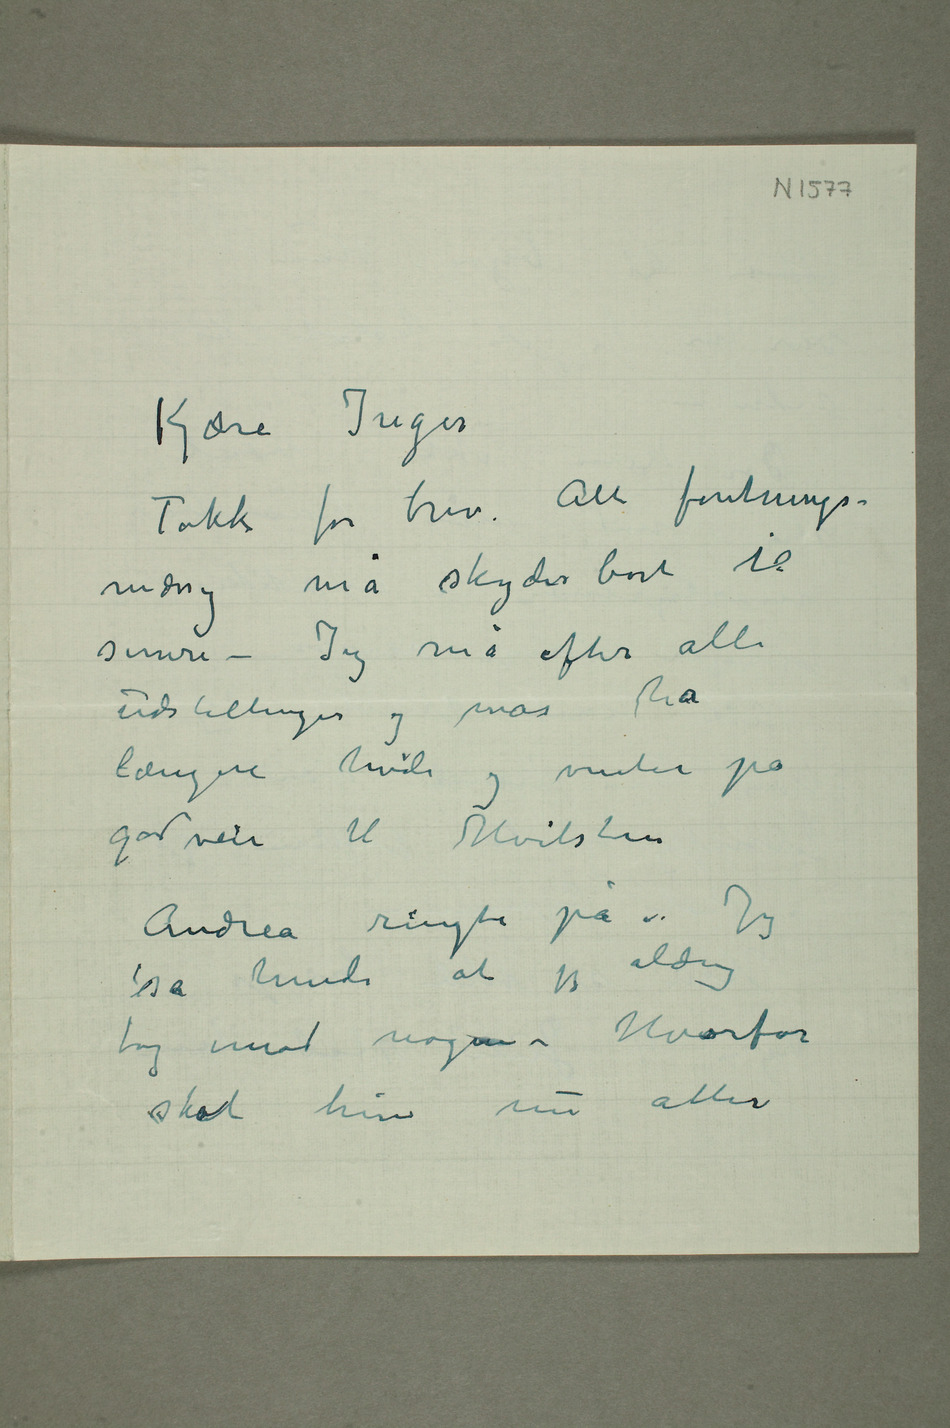 N 1577
Kjære Inger
Takk for brev. Alt forretnings-
mæssig må skydes bort til
senere – Jeg må efter alle
udstillinger og mas ha
længere hvile og venter på
godveir til Hvitsten
Andrea ringte på – Jeg
sa hende at jeg aldrig
tog imod nogen – Hvorfor
skal hun nu atter